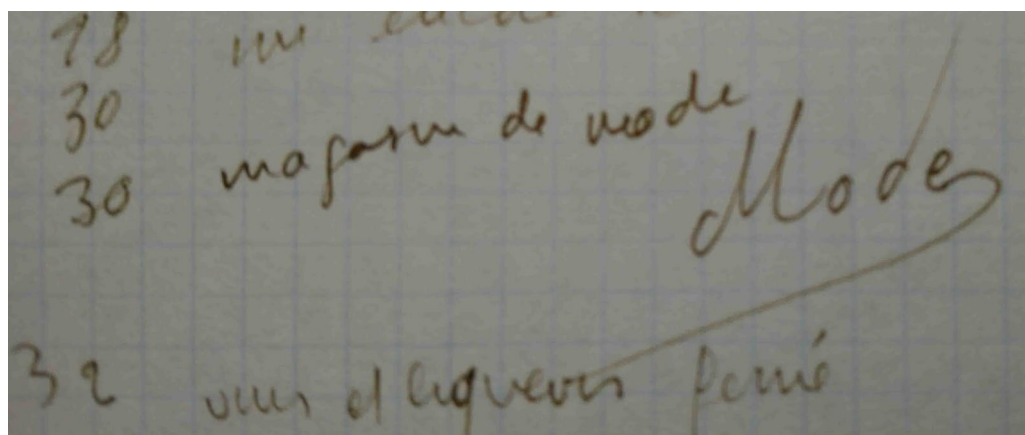 18 un
30
30 magasin de mode
Modes
32 vins et liqueurs fermé